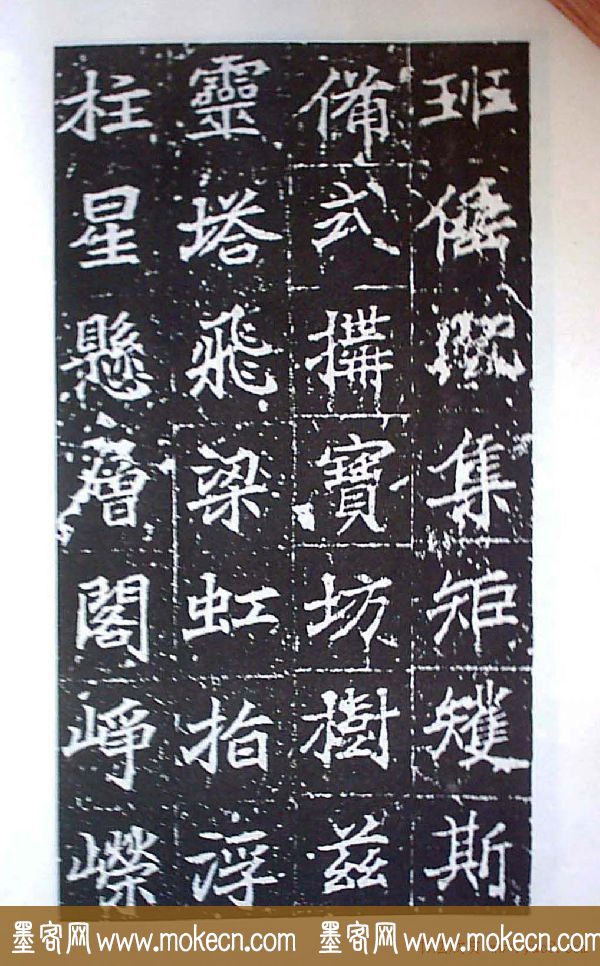 班倕既集矩矱斯
備式搆寶坊樹茲
靈塔飛梁虹指浮
柱星懸層閣崢嶸
墨客网 www.mokecn.com 墨客网 www.mokecn.com